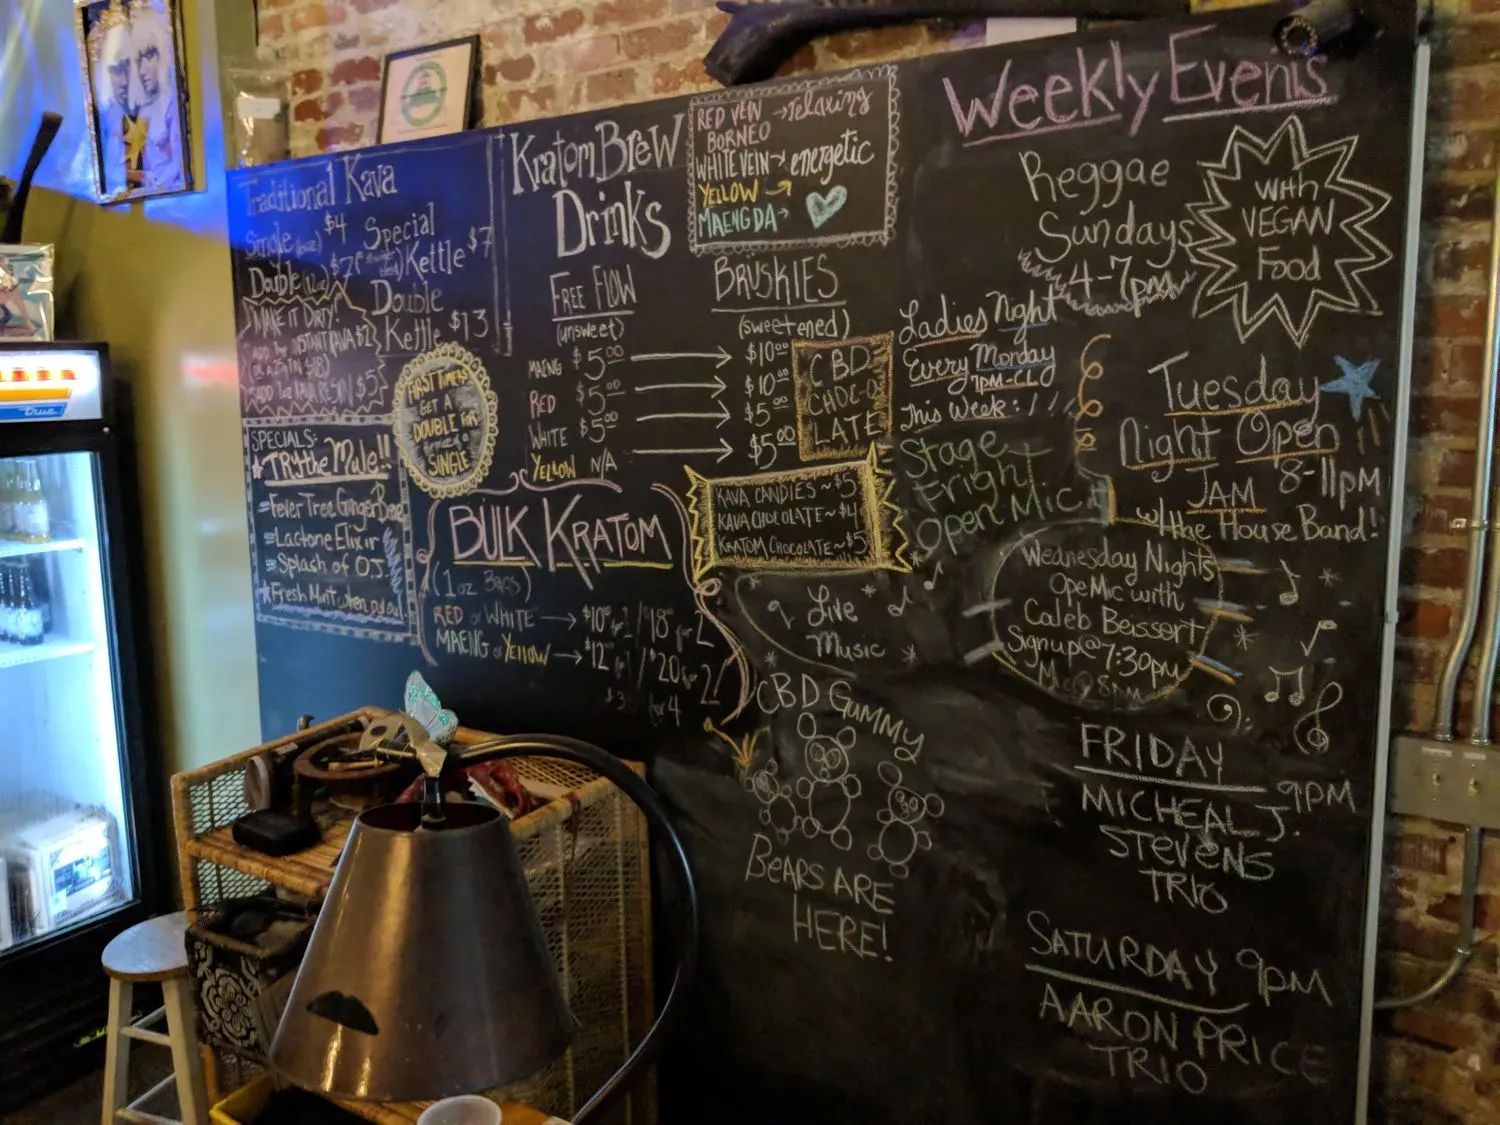 Traditional Kava
Single (6oz) $4
Double (12oz) $7
Special
Kettle $7
Double
Kettle $13
MAKE IT DIRTY!
INSTANT KAVA $2
ADD 1oz KAVA RESIN $5
FIRST TIMERS
GET A
DOUBLE FOR
SINGLE
SPECIALS:
TRY the Mule!!
Fever Tree Ginger Beer
Lactone Elixir
Splash of O.J.
Fresh Mint when
Kratom Brew
Drinks
RED VEIN → relaxing
BORNEO
WHITE VEIN → energetic
YELLOW →
MAENG DA →
FREE FLOW
(unsweet)
BRUSKIES
(sweetened)
MAENG $5.00 → $10.00
RED $5.00 → $10.00
WHITE $5.00 → $5.00
YELLOW N/A → $5.00
CBD
CHOC-O
LATE
KAVA CANDIES ~ $5
KAVA CHOCOLATE ~ $4
KRATOM CHOCOLATE ~ $5
BULK KRATOM
(1oz BAGS)
RED or WHITE → $10.00 for 1 / $18 for 2
MAENG or YELLOW → $12.00 for 1 / $20 for 2
for 4
CBD GUMMY
BEARS ARE
HERE!
Weekly Events
Reggae
Sundays
4-7pm
With
VEGAN
Food
Ladies Night
Every Monday
7PM-CLO
This Week:
Stage
Fright
Open Mic
Tuesday
Night Open
JAM 8-11pm
w/the House Band!
Live
Music
Wednesday Nights
Ope Mic with
Caleb Beissert
Signup@7:30pm
Mic@8pm
FRIDAY
9PM
MICHEAL J.
STEVENS
TRIO
SATURDAY 9PM
AARON PRICE
TRIO
True